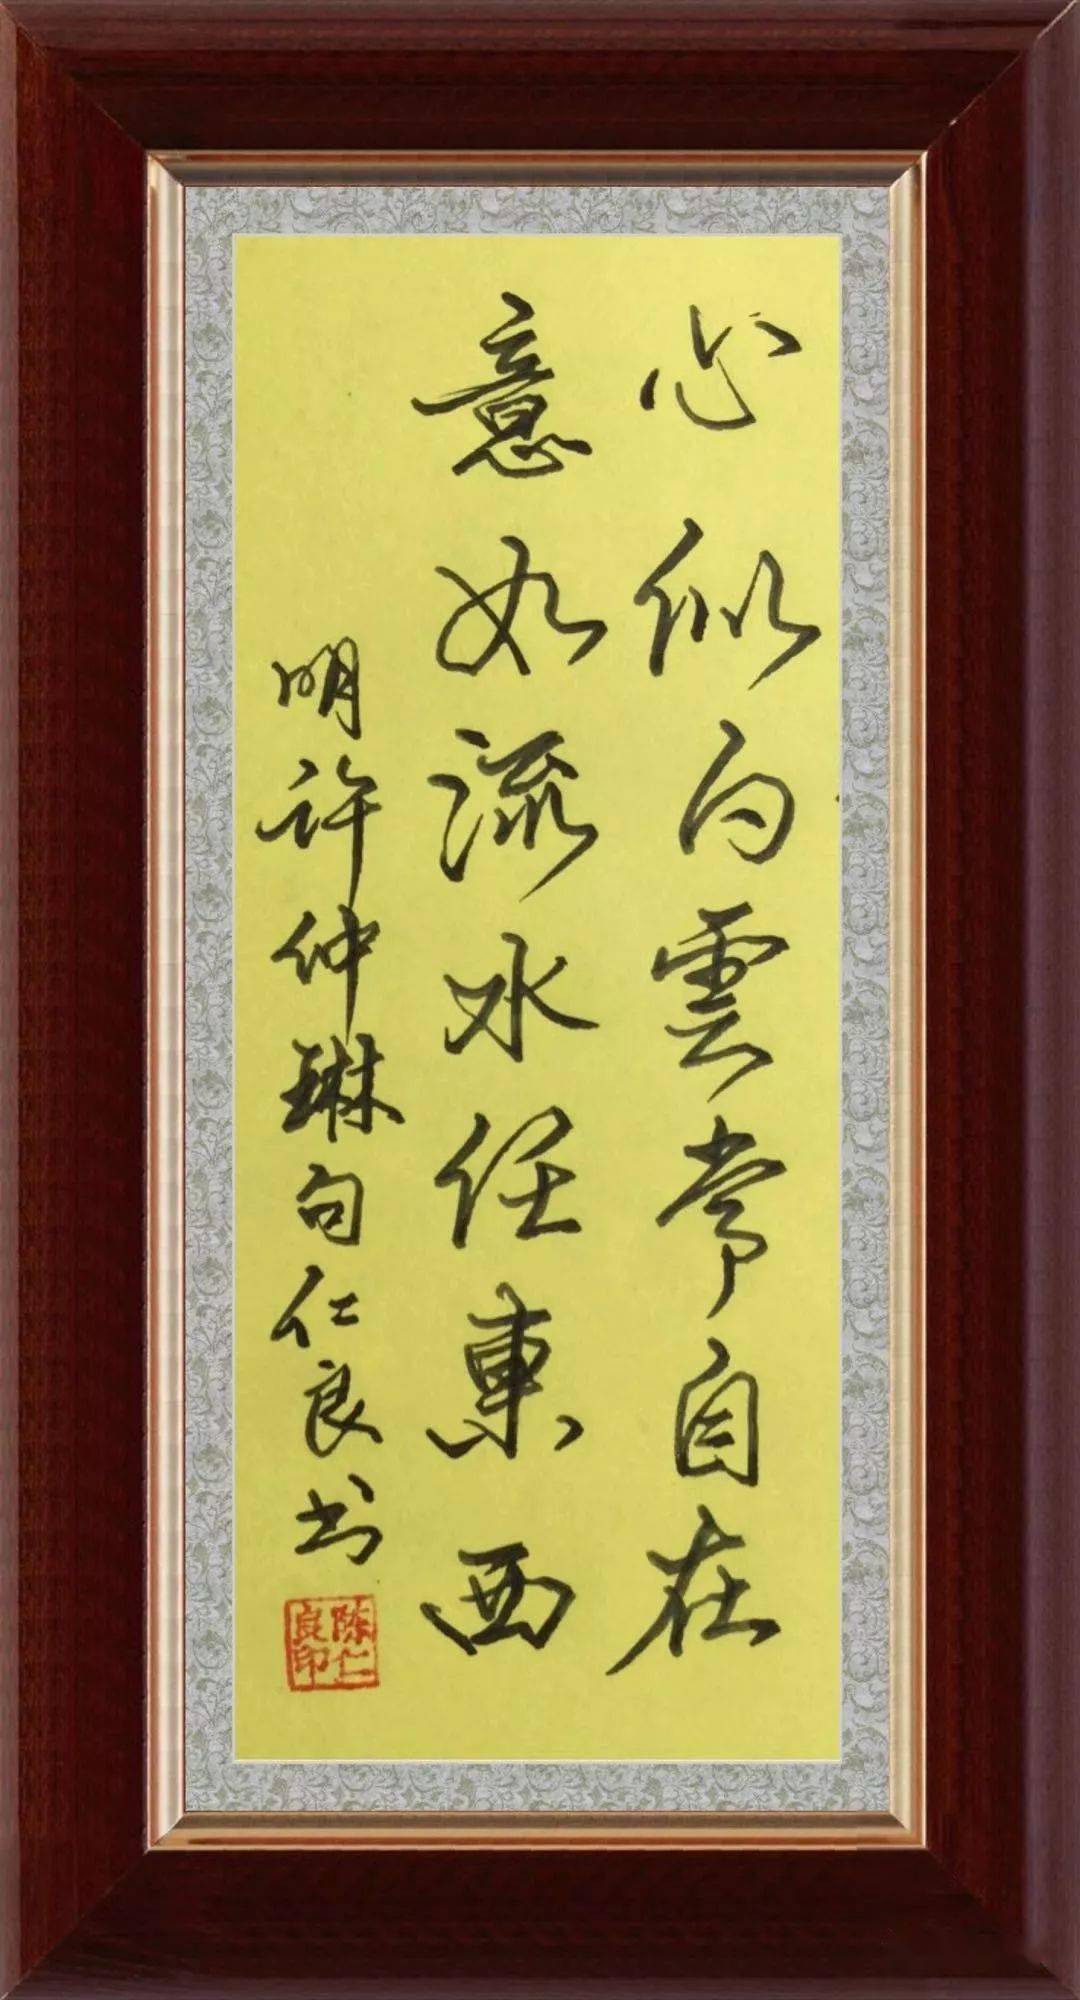 心似白雲常自在
意如流水任東西
明许仲琳句仁良书
陈仁良印